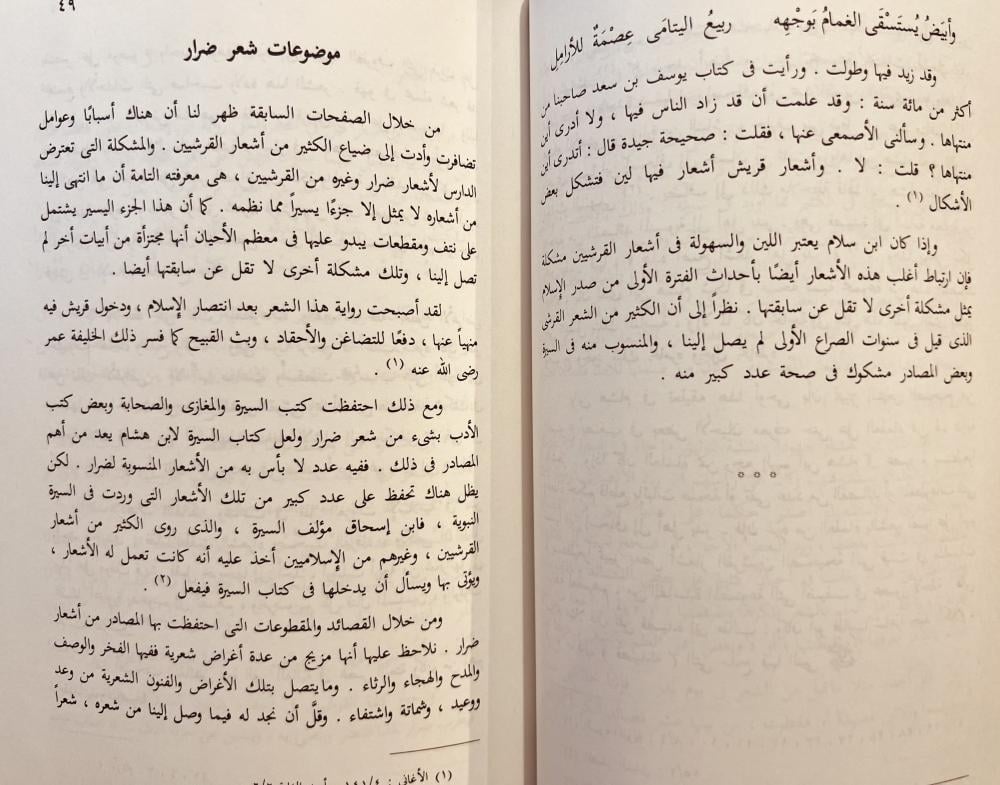 وأبيَضُ يُستَسْقَى الغمامُ بَوجْهِه ربيعُ اليتامَى عِصْمَةٌ للأرامِلِ
وقد زيد فيها وطولت . ورأيت فى كتاب يوسف بن سعد صاحبنا من
أكثر من مائة سنة : وقد علمت أن قد زاد الناس فيها ، ولا أدرى أين
منتهاها . وسألنى الأصمعى عنها ، فقلت : صحيحة جيدة قال : أتدرى أين
منتهاها ؟ قلت : لا . وأشعار قريش أشعار فيها لين فتشكل بعض
الأشكال (١) .
وإذا كان ابن سلام يعتبر اللين والسهولة فى أشعار القرشيين مشكلة
فإن ارتباط أغلب هذه الأشعار أيضًا بأحداث الفترة الأولى من صدر الإسلام
يمثل مشكلة أخرى لا تقل عن سابقتها . نظراً إلى أن الكثير من الشعر القرشى
الذى قيل فى سنوات الصراع الأولى لم يصل إلينا ، والمنسوب منه فى السيرة
وبعض المصادر مشكوك فى صحة عدد كبير منه .
* * *
٤٩
موضوعات شعر ضرار
من خلال الصفحات السابقة ظهر لنا أن هناك أسبابًا وعوامل
تضافرت وأدت إلى ضياع الكثير من أشعار القرشيين . والمشكلة التى تعترض
الدارس لأشعار ضرار وغيره من القرشيين ، هى معرفته التامة أن ما انتهى إلينا
من أشعاره لا يمثل إلا جزءًا يسيراً مما نظمه . كما أن هذا الجزء اليسير يشتمل
على نتف ومقطعات يبدو عليها فى معظم الأحيان أنها مجتزأة من أبيات أخر لم
تصل إلينا ، وتلك مشكلة أخرى لا تقل عن سابقتها أيضا .
لقد أصبحت رواية هذا الشعر بعد انتصار الإسلام ، ودخول قريش فيه
منهياً عنها ، دفعًا للتضاغن والأحقاد ، وبث القبيح كما فسر ذلك الخليفة عمر
رضى الله عنه (١) .
ومع ذلك احتفظت كتب السيرة والمغازى والصحابة وبعض كتب
الأدب بشىء من شعر ضرار ولعل كتاب السيرة لابن هشام يعد من أهم
المصادر فى ذلك . ففيه عدد لا بأس به من الأشعار المنسوبة لضرار . لكن
يظل هناك تحفظ على عدد كبير من تلك الأشعار التى وردت فى السيرة
النبوية ، فابن إسحاق مؤلف السيرة ، والذى روى الكثير من أشعار
القرشيين ، وغيرهم من الإسلاميين أخذ عليه أنه كانت تعمل له الأشعار ،
ويؤتى بها ويسأل أن يدخلها فى كتاب السيرة فيفعل (٢) .
ومن خلال القصائد والمقطوعات التى احتفظت بها المصادر من أشعار
ضرار . نلاحظ عليها أنها مزيج من عدة أغراض شعرية ففيها الفخر والوصف
والمدح والهجاء والرثاء . ومايتصل بتلك الأغراض والفنون الشعرية من وعد
ووعيد ، وشماتة واشتفاء . وقلَّ أن نجد له فيما وصل إلينا من شعره ، شعراً
(١) الأغانى :